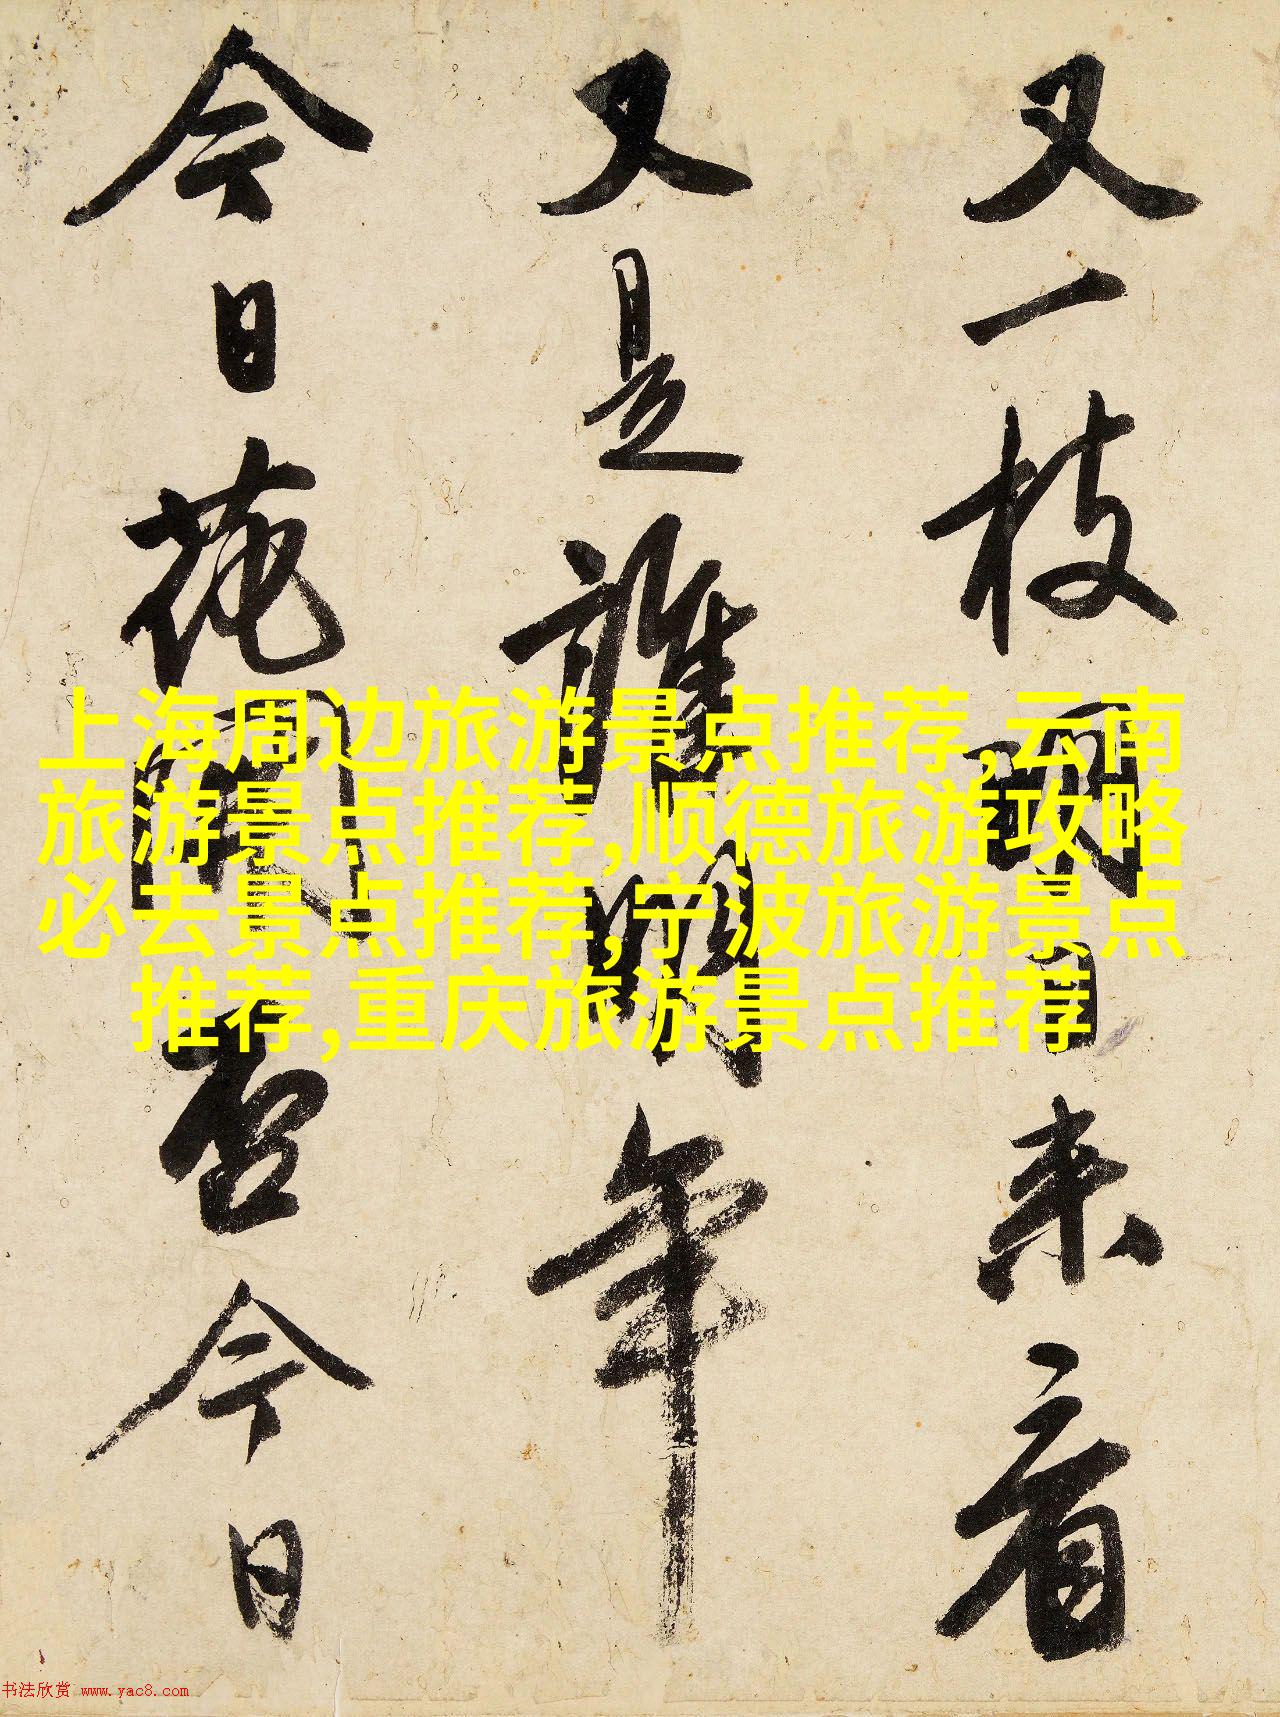 又一枝明日来看
又是誰明年
今日花開否今日
上海周边旅游景点推荐,云南
旅游景点推荐,顺德旅游攻略
必去景点推荐,宁波旅游景点
推荐,重庆旅游景点推荐
书法欣赏 www.yac8.com